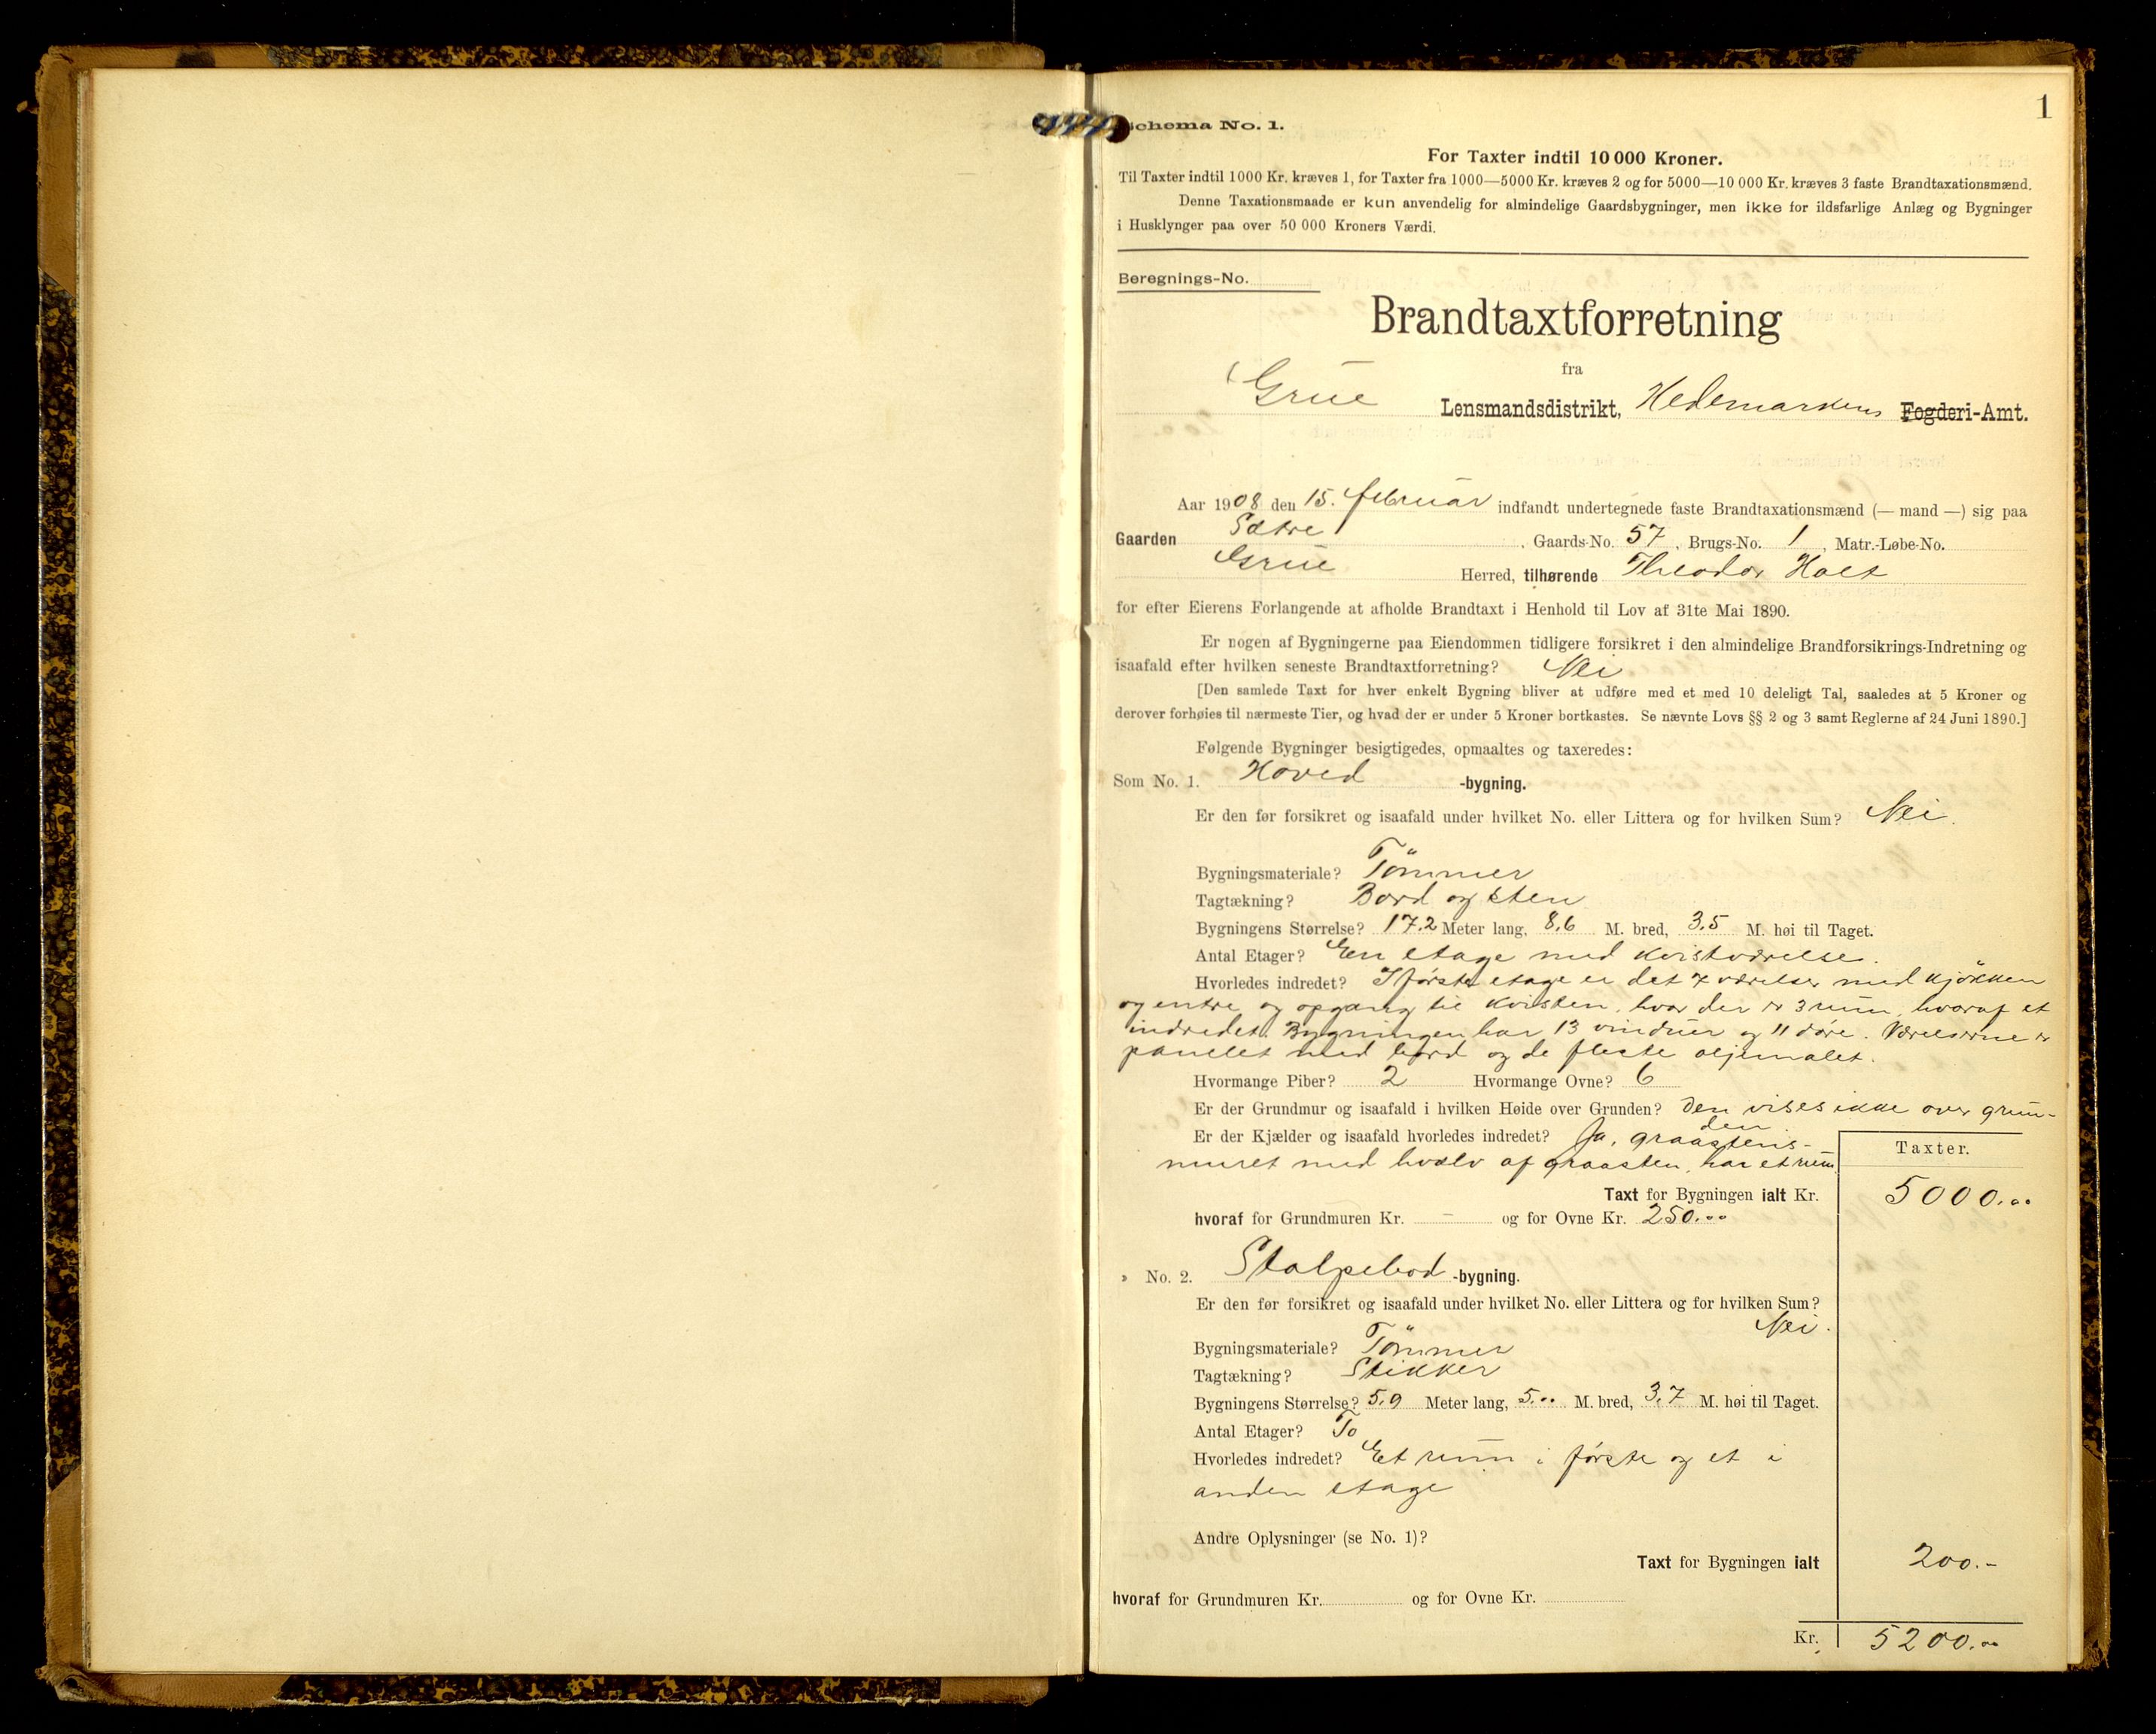 1
Schema No. 1.
For Taxter indtil 10 000 Kroner.
Til Taxter indtil 1000 Kr. kræves 1, for Taxter fra 1000—5000 Kr. kræves 2 og for 5000—10 000 Kr. kræves 3 faste Brandtaxationsmænd.
Denne Taxationsmaade er kun anvendelig for almindelige Gaardsbygninger, men ikke for ildsfarlige Anlæg og Bygninger
i Husklynger paa over 50 000 Kroners Værdi.
Beregnings-No.
Brandtaxtforretning
fra
Grue Lensmandsdistrikt, Hedemarkens Fogderi-Amt.
Aar 1908 den 15. februar indfandt undertegnede faste Brandtaxationsmænd (— mand —) sig paa
Gaarden Sætre, Gaards-No. 57, Brugs-No. 1, Matr.-Løbe-No.
Grue Herred, tilhørende Theodor Holt
for efter Eierens Forlangende at afholde Brandtaxt i Henhold til Lov af 31te Mai 1890.
Er nogen af Bygningerne paa Eiendommen tidligere forsikret i den almindelige Brandforsikrings-Indretning og
isaafald efter hvilken seneste Brandtaxtforretning? Nei
[Den samlede Taxt for hver enkelt Bygning bliver at udføre med et med 10 deleligt Tal, saaledes at 5 Kroner og
derover forhøies til nærmeste Tier, og hvad der er under 5 Kroner bortkastes. Se nævnte Lovs §§ 2 og 3 samt Reglerne af 24 Juni 1890.]
Følgende Bygninger besigtigedes, opmaaltes og taxeredes:
Som No. 1. Hoved -bygning.
Er den før forsikret og isaafald under hvilket No. eller Littera og for hvilken Sum? Nei.
Bygningsmateriale? Tömmer
Tagtækning? Bord og sten
Bygningens Størrelse? 17.2 Meter lang, 8,6 M. bred, 3,5 M. høi til Taget.
Antal Etager? En etage med kvistværelse.
Hvorledes indredet? I første etage er det 7 værelser med kjökken
og entre og opgang til kvisten, hvor der er 3 rum, hvoraf et
indredet. Bygningen har 13 vinduer og 11 døre. Værelserne er
panelet med bord og de fleste oljemalet.
Hvormange Piber? 2 Hvormange Ovne? 6
Er der Grundmur og isaafald i hvilken Høide over Grunden? Den vises ikke over grun-
den
Er der Kjælder og isaafald hvorledes indredet? Ja, graastens-
muret med hvælv af graasten, har et rum
Taxter.
Taxt for Bygningen ialt Kr. 5000.00
hvoraf for Grundmuren Kr. — og for Ovne Kr. 250.00
» No. 2. Stolpebod -bygning.
Er den før forsikret og isaafald under hvilket No. eller Littera og for hvilken Sum?
Nei.
Bygningsmateriale? Tömmer
Tagtækning? Stikker
Bygningens Størrelse? 5,9 Meter lang, 5.00 M. bred, 3,7 M. høi til Taget.
Antal Etager? To
Hvorledes indredet? Et rum i første og et i
anden etage
Andre Oplysninger (se No. 1)?
Taxt for Bygningen ialt 200.-
hvoraf for Grundmuren Kr. og for Ovne Kr.
Kr. 5200.00